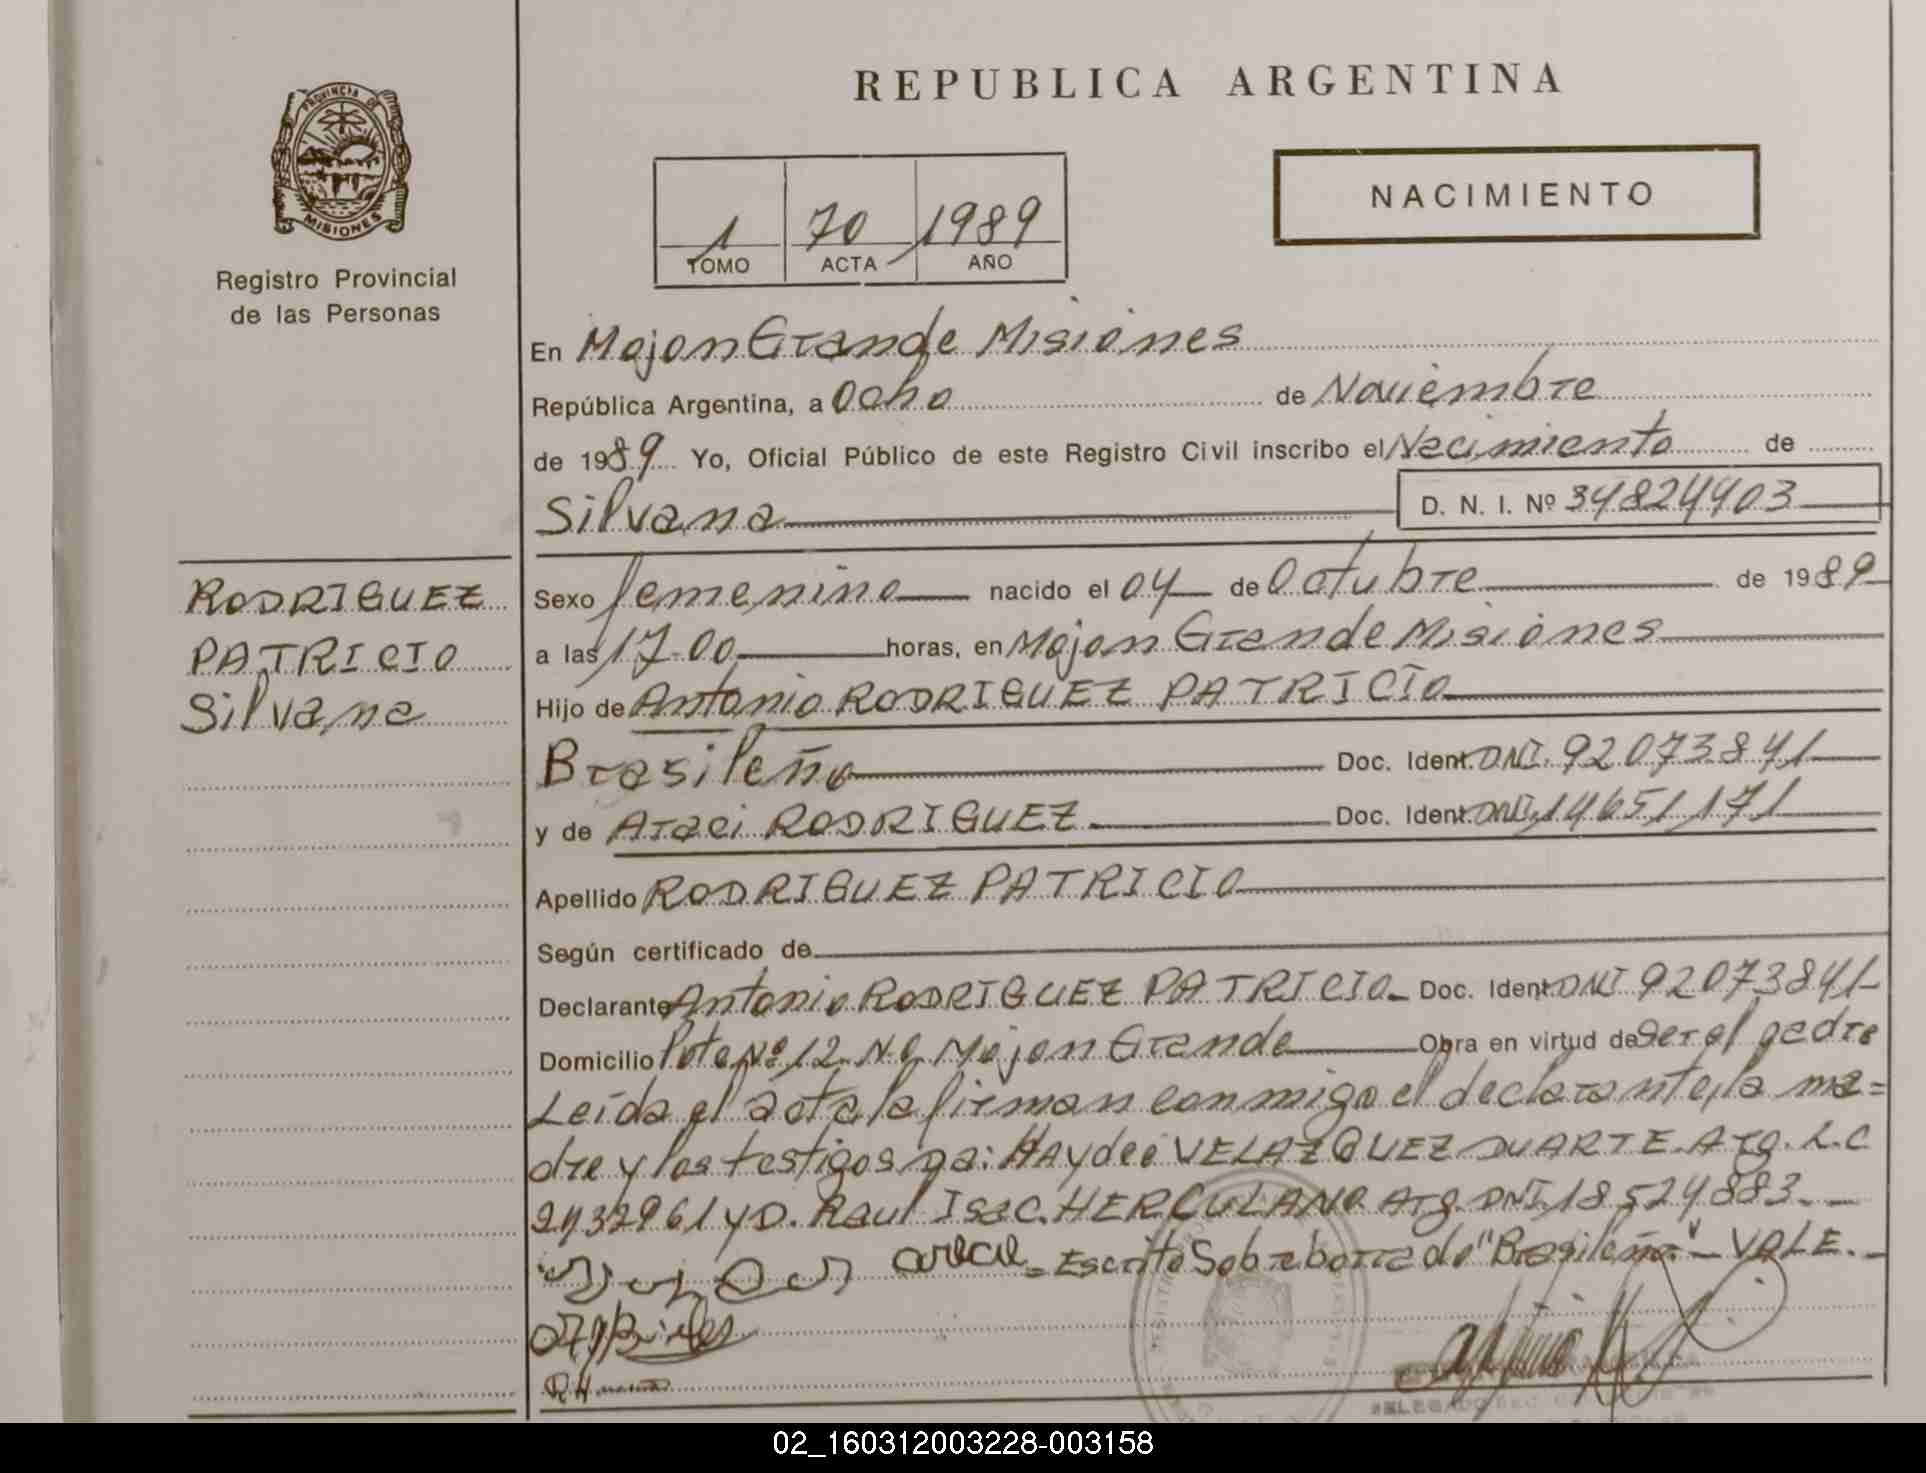 PROVINCIA DE
MISIONES
Registro Provincial
de las Personas
REPUBLICA ARGENTINA
1 70 1989
TOMO ACTA AÑO
NACIMIENTO
En Mojon Grande Misiones
República Argentina, a Ocho de Noviembre
de 1989 Yo, Oficial Público de este Registro Civil inscribo el Nacimiento de
Silvana D. N. I. Nº 34824403
RODRIGUEZ
PATRICIO
Silvana
Sexo femenino nacido el 04 de Octubre de 1989
a las 17-00 horas, en Mojon Grande Misiones
Hijo de Antonio RODRIGUEZ PATRICIO
Brasileño Doc. Ident. DNI. 92073841
y de Araci RODRIGUEZ Doc. Ident. DNI. 14651171
Apellido RODRIGUEZ PATRICIO
Según certificado de
Declarante Antonio RODRIGUEZ PATRICIO Doc. Ident. DNI 92073841
Domicilio Lote Nº 12 Mojon Grande Obra en virtud de ser el padre
Leída el acta la firman conmigo el declarante, la ma=
dre y los testigos Haydeé VELAZQUEZ DUARTE. Arg. L.C
2432961 y D. Raul Isac. HERCULANO. Arg. DNI. 18524883.
= Escrito Sobre borrado "Brasileño" - VALE.
02_160312003228-003158